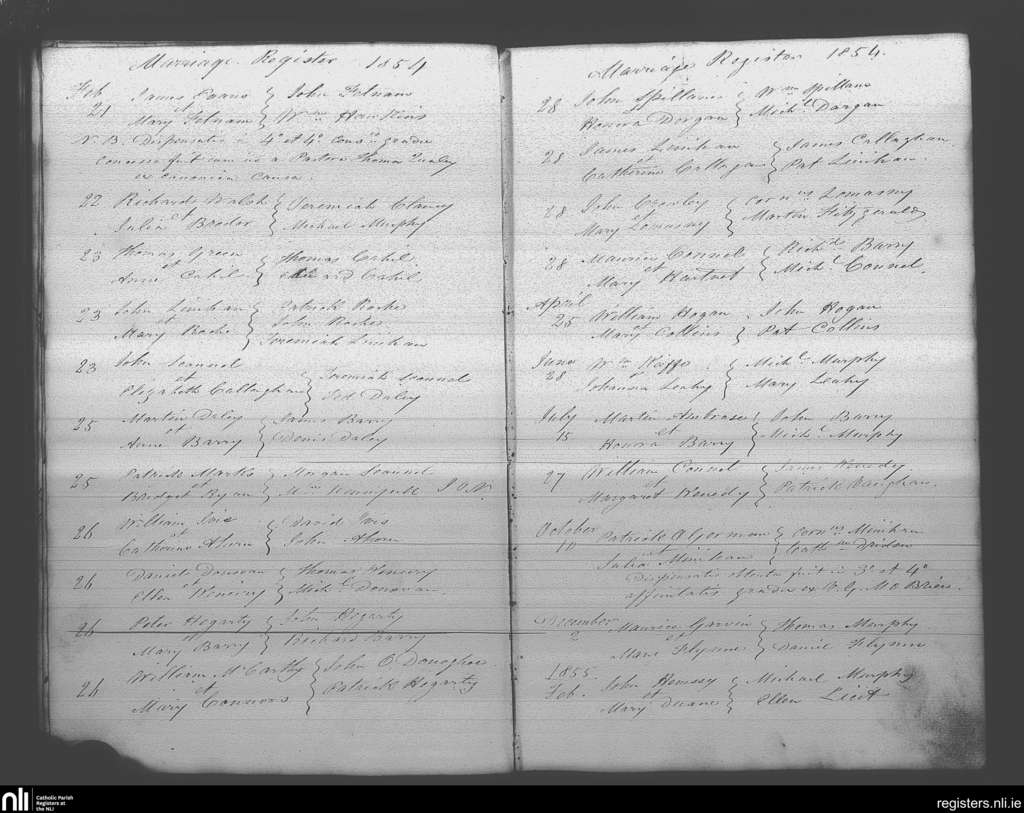 Marriage Register 1854
Feb James Evans } John
21 et
Mary } Wm Hawkins
N. B. Dispensatio in 4o et 4o
concessa fuit a Pastore Thoma
ex canonica causa.
22 Richard Walsh } Jeremiah Clancy
et
Julia Broder } Michael Murphy
23 Thomas Green } Thomas Cahil
et
Anne Cahil } and Cahil
23 John Linehan } Patrick Roche
et John Roche
Mary Roche } Jeremiah Linehan
23 John Scannel
et } Jeremiah Scannel
Elizabeth Callaghan } Daley
25 Martin Daley } James Barry
et
Anne Barry } Denis Daley
25 Patrick } Morgan Scannel
et
Bridget Ryan } J O N.
26 William } David
et
Catherine Ahern } John Ahern
26 Daniel Donovan } Thomas
et
Ellen } Michl Donovan
26 Peter Hogarty } John Hogarty
et
Mary Barry } Richard Barry
26 William McCarthy } John O Donoghue
et
Mary Connors } Patrick Hogarty
Marriage Register 1854.
28 John Spillane } Wm Spillane
Honora Dorgan } Michl Dorgan
28 James Linehan } James Callaghan
et
Catherine Callagan } Pat Linehan
28 John } Cornus Lomasny
et
Mary Lomasny } Martin Fitzgerald
28 Maurice Connel } Richd Barry
et
Mary Hartnet } Michl Connel.
April
25 William Hogan } John Hogan
et
Mary Collins } Pat Collins
June Wm } Michl Murphy
28 et
Johanna Leahy } Mary Leahy
July Martin Ambrose } John Barry
15 et
Honora Barry } Michl Murphy
27 William Connel } James Kenedy
et
Margaret Kenedy } Patrick
October
10 Patrick OGorman } Cornus Minihan
et
Julia Minihan } Cathne
Dispensatio fuit in 3o et 4o
affinitatis gradu ex V. G. M. O Brien.
December
2 Maurice } Thomas Murphy
et
Mary Flynn } Daniel Flynn
1855.
Feb. John } Michael Murphy
et
Mary Duane } Ellen
nli
Catholic Parish
Registers at
the NLI
registers.nli.ie